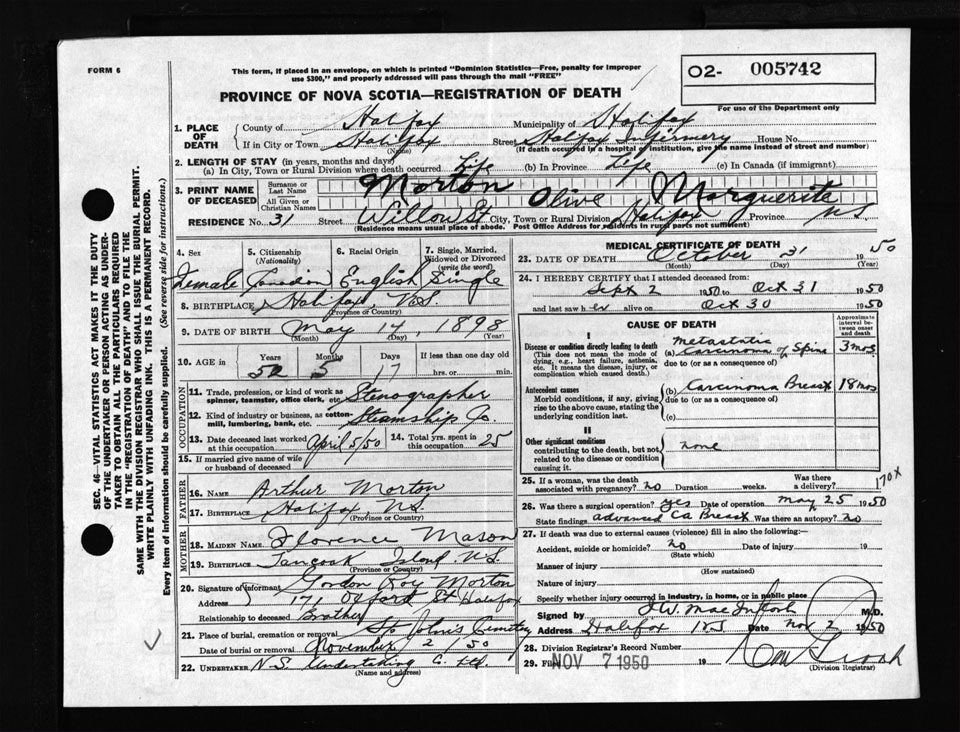 FORM 6
This form, if placed in an envelope, on which is printed "Dominion Statistics—Free, penalty for improper
use $300," and properly addressed will pass through the mail "FREE"
PROVINCE OF NOVA SCOTIA—REGISTRATION OF DEATH
O2- 005742
For use of the Department only
1. PLACE OF DEATH
County of Halifax Municipality of Halifax
If in City or Town Halifax Street Halifax Infirmary House No.
(Name) (If death occurred in a hospital or institution, give the name instead of street and number)
2. LENGTH OF STAY (in years, months and days)
(a) In City, Town or Rural Division where death occurred Life (b) In Province Life (c) In Canada (if immigrant)
3. PRINT NAME OF DECEASED
Surname or Last Name Morton
All Given or Christian Names Olive Marguerite
RESIDENCE No. 31 Street Willow St City, Town or Rural Division Halifax Province N.S.
(Residence means usual place of abode. Post Office Address for residents in rural parts not sufficient)
SEC. 46—VITAL STATISTICS ACT MAKES IT THE DUTY
OF THE UNDERTAKER OR PERSON ACTING AS UNDER-
TAKER TO OBTAIN ALL THE PARTICULARS REQUIRED
IN THE "REGISTRATION OF DEATH" AND TO FILE THE
SAME WITH THE DIVISION REGISTRAR WHO SHALL ISSUE THE BURIAL PERMIT.
WRITE PLAINLY WITH UNFADING INK. THIS IS A PERMANENT RECORD.
Every item of information should be carefully supplied. (See reverse side for instructions.)
4. Sex 5. Citizenship (Nationality) 6. Racial Origin 7. Single, Married, Widowed or Divorced (write the word)
Female Canadian English Single
8. BIRTHPLACE Halifax, N.S.
(Province or Country)
9. DATE OF BIRTH May 14, 1898
(Month) (Day) (Year)
10. AGE in Years Months Days If less than one day old
52 5 17 hrs. or min.
OCCUPATION
11. Trade, profession, or kind of work as
spinner, teamster, office clerk, etc. Stenographer
12. Kind of industry or business, as cotton-
mill, lumbering, bank, etc. Steamship Co
13. Date deceased last worked at this occupation April 5/50 14. Total yrs. spent in this occupation 25
15. If married give name of wife
or husband of deceased
FATHER
16. NAME Arthur Morton
17. BIRTHPLACE Halifax, N.S.
(Province or Country)
MOTHER
18. MAIDEN NAME Florence Mason
19. BIRTHPLACE Tancook Island, N.S.
(Province or Country)
20. Signature of informant Gordon Roy Morton
Address 171 Oxford St Halifax
Relationship to deceased Brother
21. Place of burial, cremation or removal St John's Cemetery
Date of burial or removal November 2/50
22. UNDERTAKER N.S. Undertaking C. Ltd.
(Name and address)
MEDICAL CERTIFICATE OF DEATH
23. DATE OF DEATH October 31 1950
(Month) (Day) (Year)
24. I HEREBY CERTIFY that I attended deceased from:
Sept 2 1950 to Oct 31 1950
and last saw her alive on Oct 30 1950
CAUSE OF DEATH
Approximate interval between onset and death
Disease or condition directly leading to death
(This does not mean the mode of dying, e.g., heart failure, asthenia, etc. It means the disease, injury, or complication which caused death.)
metastatic
(a) Carcinoma of Spine 3 mos
due to (or as a consequence of)
Antecedent causes
Morbid conditions, if any, giving rise to the above cause, stating the underlying condition last.
(b) Carcinoma Breast 18 mos
due to (or as a consequence of)
(c)
II
Other significant conditions
contributing to the death, but not related to the disease or condition causing it.
none
25. If a woman, was the death associated with pregnancy? no Duration weeks. Was there a delivery?
170X
26. Was there a surgical operation? yes Date of operation May 25 1950
State findings advanced Ca Breast Was there an autopsy? no
27. If death was due to external causes (violence) fill in also the following:—
Accident, suicide or homicide? no Date of injury 19
(State which)
Manner of injury
(How sustained)
Nature of injury
Specify whether injury occurred in industry, in home, or in public place
Signed by MacIntosh M.D.
Address Halifax N.S. Date Nov 2 1950
28. Division Registrar's Record Number
29. Filed NOV 7 1950 19
(Division Registrar)